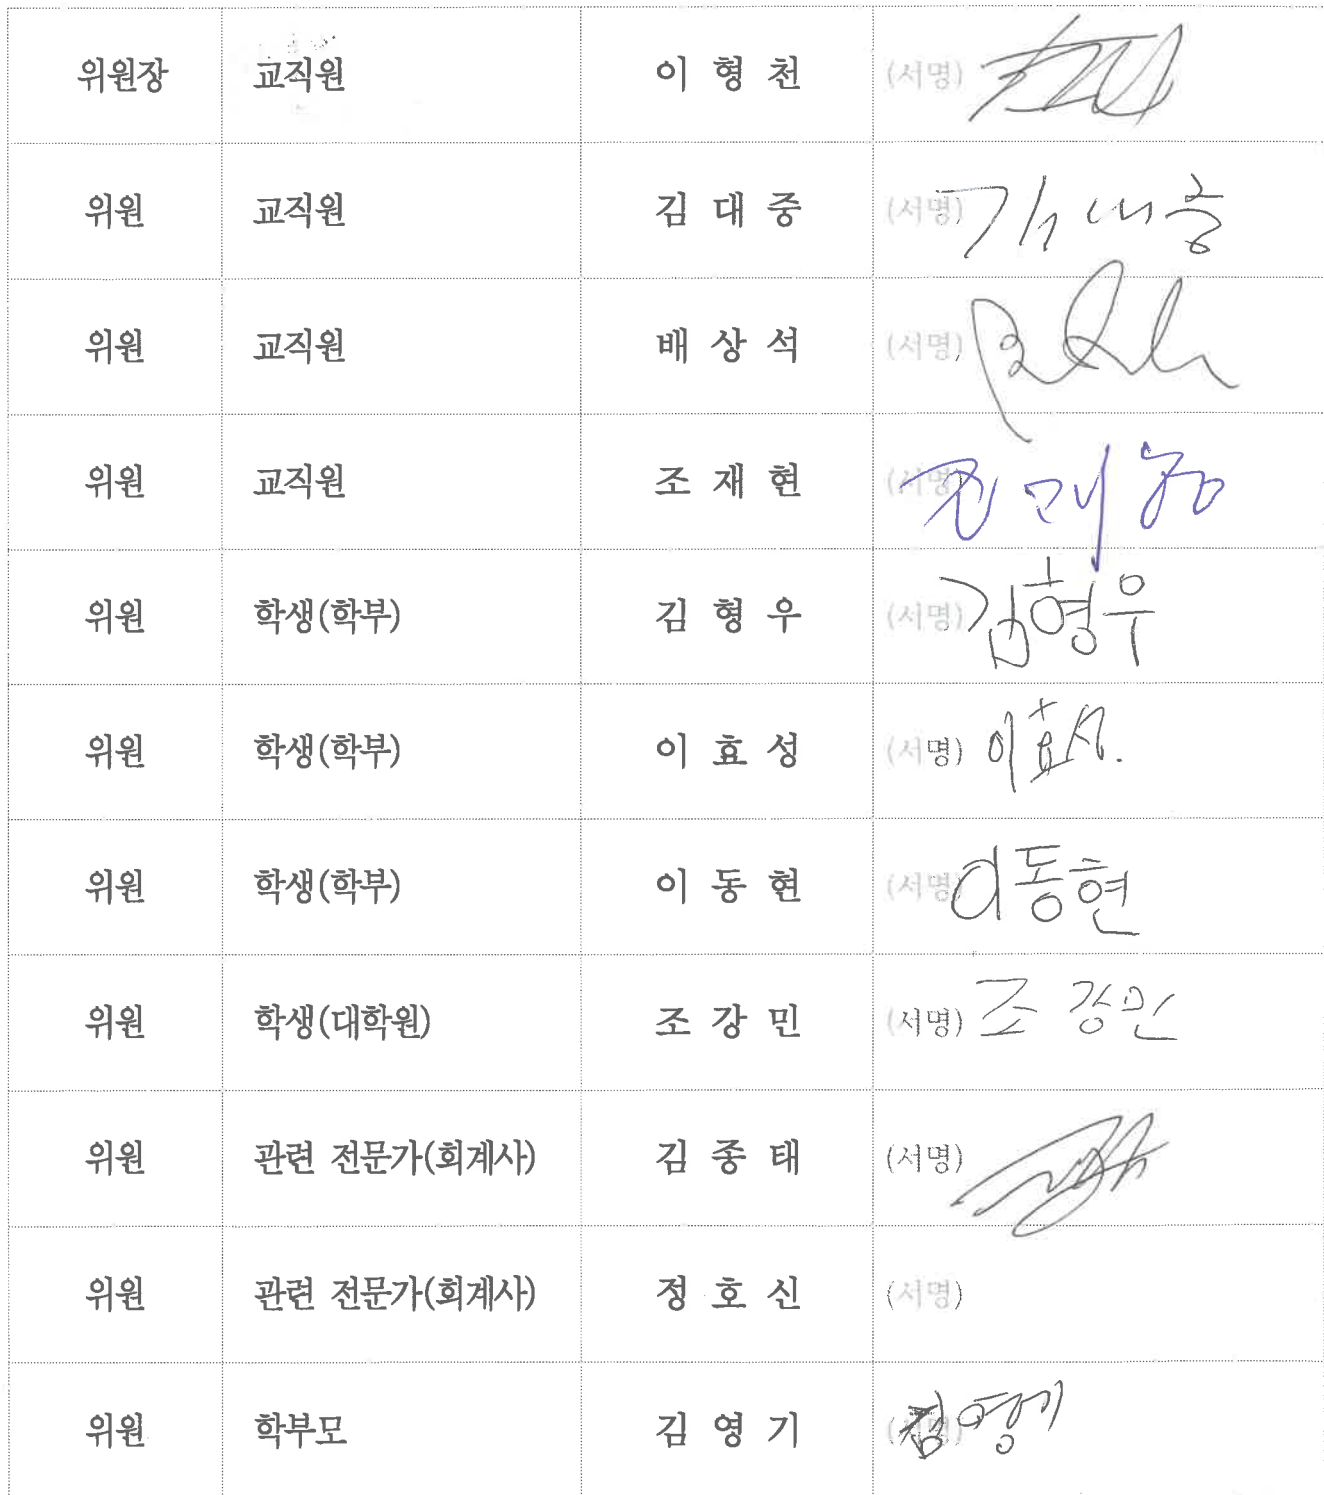 위원장 교직원 이 형 천 (서명)
위원 교직원 김 대 중 (서명) 김대중
위원 교직원 배 상 석 (서명)
위원 교직원 조 재 현 (서명) 조재현
위원 학생(학부) 김 형 우 (서명) 김형우
위원 학생(학부) 이 효 성 (서명) 이효성.
위원 학생(학부) 이 동 현 (서명) 이동현
위원 학생(대학원) 조 강 민 (서명) 조강민
위원 관련 전문가(회계사) 김 종 태 (서명)
위원 관련 전문가(회계사) 정 호 신 (서명)
위원 학부모 김 영 기 (서명) 김영기